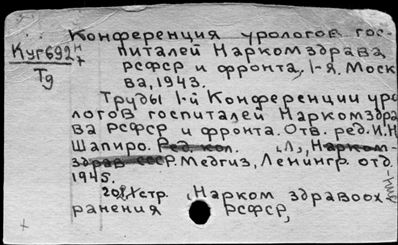 Конференция урологов гос-
Куг692 н7 питалей Наркомздрава
Тд РСФСР и фронта, 1-я. Моск
ва, 1943.
Труды 1-й Конференции уро
логов госпиталей Наркомздра
ва РСФСР и фронта. Отв. ред. И.Н.
Шапиро. Ред. кол. Л., Нарком-
здрав СССР. Медгиз, Ленингр. отд.
1945.
стр. (Нарком здравоох
ранения РСФСР,